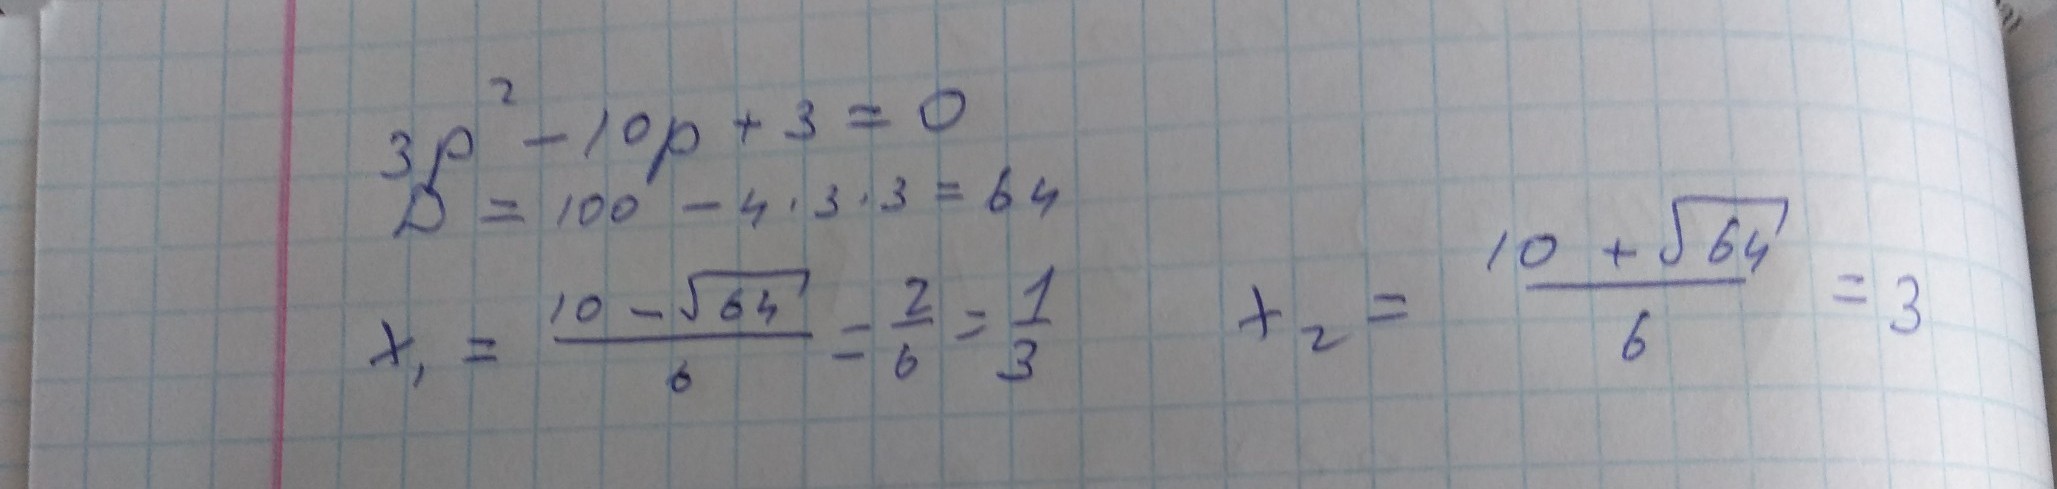 3p² - 10p + 3 = 0
D = 100 - 4 · 3 · 3 = 64
x₁ = (10 - √64)/6 = 2/6 = 1/3    x₂ = (10 + √64)/6 = 3